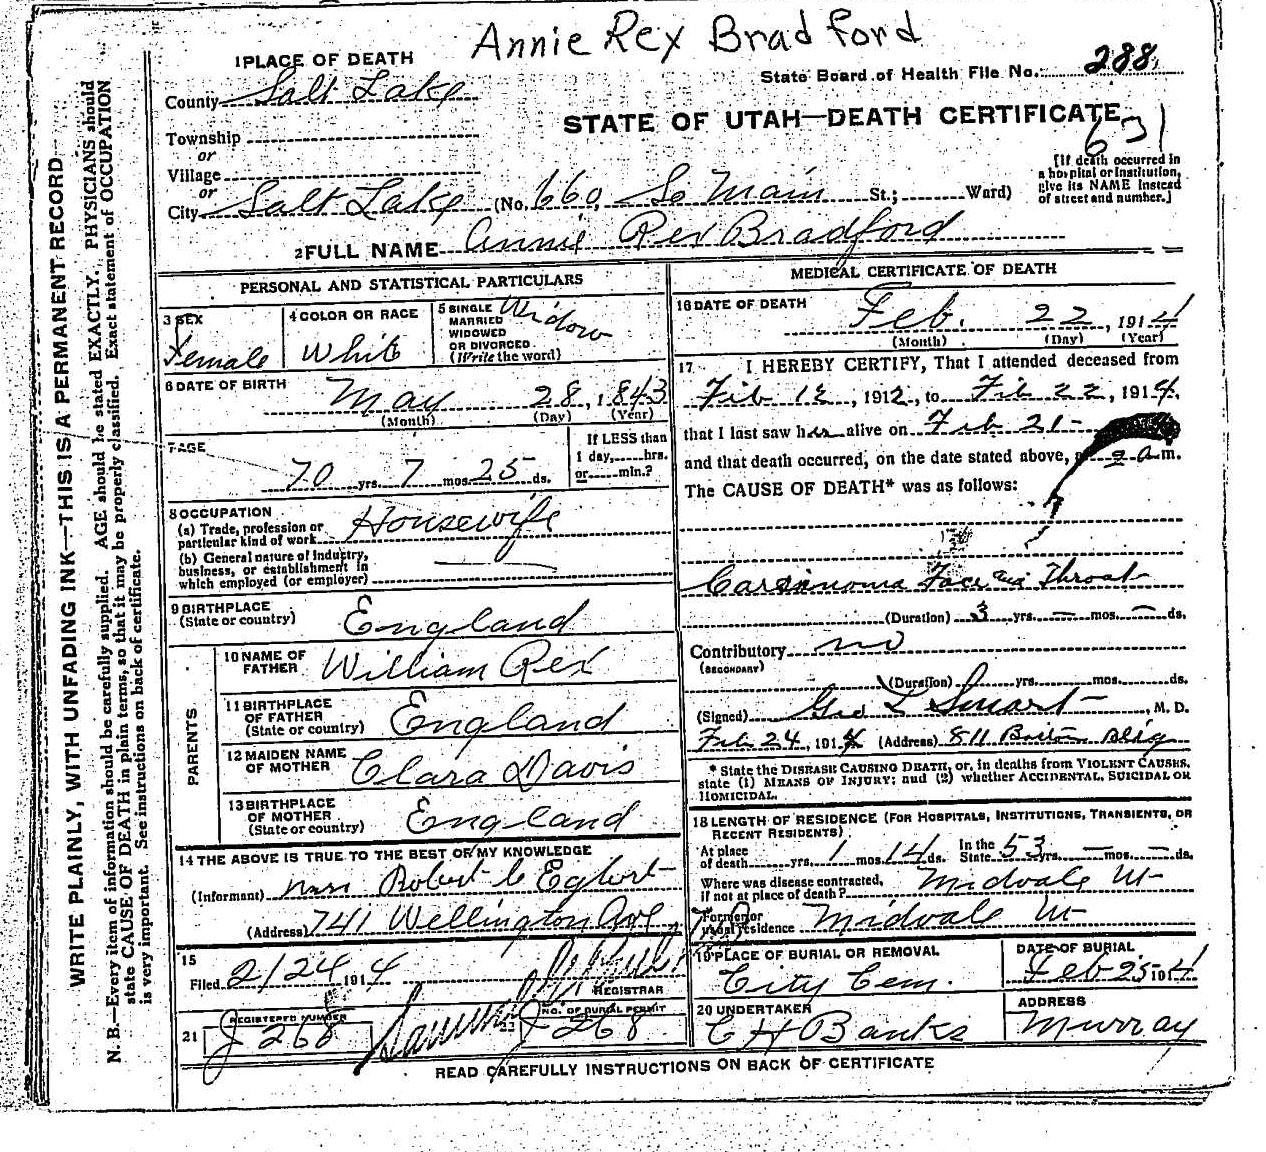 Annie Rex Bradford
1 PLACE OF DEATH
State Board of Health File No. 288
County Salt Lake
STATE OF UTAH—DEATH CERTIFICATE
631
Township
or
Village
or
City Salt Lake (No. 660, So Main St.; Ward)
[If death occurred in
a hospital or institution,
give its NAME instead
of street and number.]
2 FULL NAME Annie Rex Bradford
PERSONAL AND STATISTICAL PARTICULARS
3 SEX
Female
4 COLOR OR RACE
White
5 SINGLE
MARRIED
WIDOWED
OR DIVORCED
(Write the word)
Widow
6 DATE OF BIRTH
May 28, 1843
(Month) (Day) (Year)
7 AGE
70 yrs. 7 mos. 25 ds.
If LESS than
1 day, hrs.
or min.?
8 OCCUPATION
(a) Trade, profession or
particular kind of work Housewife
(b) General nature of industry,
business, or establishment in
which employed (or employer)
9 BIRTHPLACE
(State or country) England
PARENTS
10 NAME OF
FATHER William Rex
11 BIRTHPLACE
OF FATHER
(State or country) England
12 MAIDEN NAME
OF MOTHER Clara Davis
13 BIRTHPLACE
OF MOTHER
(State or country) England
14 THE ABOVE IS TRUE TO THE BEST OF MY KNOWLEDGE
(Informant) Mrs Robert C Egbert
(Address) 741 Wellington Ave
15
Filed 2/24 1914
REGISTRAR
21
REGISTERED NUMBER
J 268
22
NO. OF BURIAL PERMIT
J 268
MEDICAL CERTIFICATE OF DEATH
16 DATE OF DEATH
Feb. 22, 1914
(Month) (Day) (Year)
17 I HEREBY CERTIFY, That I attended deceased from
Feb 12, 1912, to Feb 22, 1914,
that I last saw her alive on Feb 21-
and that death occurred, on the date stated above, a m.
The CAUSE OF DEATH* was as follows:
Carsinoma Face and Throat
(Duration) 3 yrs. — mos. — ds.
Contributory no
(SECONDARY)
(Duration) yrs. mos. ds.
(Signed) Geo L Smart, M. D.
Feb 24, 1914 (Address) 811 Boston Bldg
* State the DISEASE CAUSING DEATH, or, in deaths from VIOLENT CAUSES,
state (1) MEANS OF INJURY; and (2) whether ACCIDENTAL, SUICIDAL OR
HOMICIDAL.
18 LENGTH OF RESIDENCE (FOR HOSPITALS, INSTITUTIONS, TRANSIENTS, OR
RECENT RESIDENTS)
At place
of death yrs. 1 mos. 14 ds. In the
State 53 yrs. — mos. — ds.
Where was disease contracted,
if not at place of death? Midvale Ut
Former or
usual residence Midvale Ut
19 PLACE OF BURIAL OR REMOVAL
City Cem.
DATE OF BURIAL
Feb 25 1914
20 UNDERTAKER
C H Banks
ADDRESS
Murray
READ CAREFULLY INSTRUCTIONS ON BACK OF CERTIFICATE
WRITE PLAINLY, WITH UNFADING INK—THIS IS A PERMANENT RECORD
N. B.—Every item of information should be carefully supplied. AGE should be stated EXACTLY. PHYSICIANS should
state CAUSE OF DEATH in plain terms, so that it may be properly classified. Exact statement of OCCUPATION
is very important. See instructions on back of certificate.